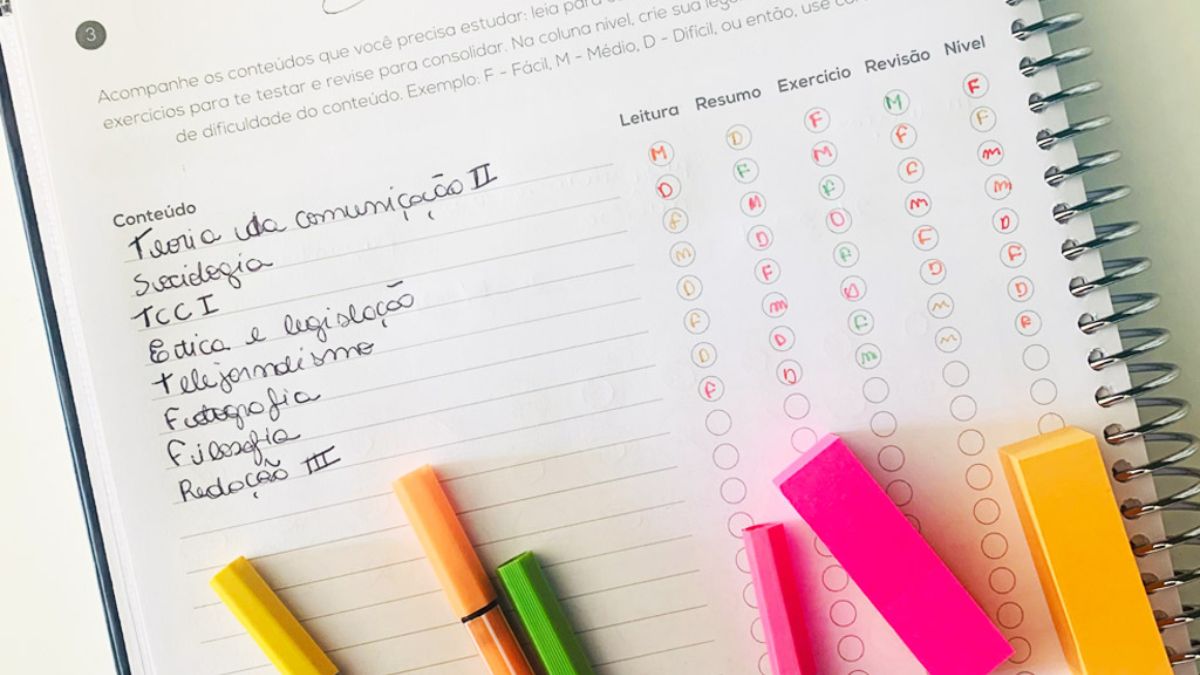 3
Acompanhe os conteúdos que você precisa estudar: leia para
exercícios para te testar e revise para consolidar. Na coluna nível, crie sua
de dificuldade do conteúdo. Exemplo: F - Fácil, M - Médio, D - Difícil, ou então, use
Conteúdo Leitura Resumo Exercício Revisão Nível
Teoria da comunicação II M D F M F
Sociologia D F M F F
TCC I F M F F m
Ética e legislação M D D m m
telejornalismo D F F F D
Fotografia F m D D F
Filosofia D D F m D
Redação III F D m m F